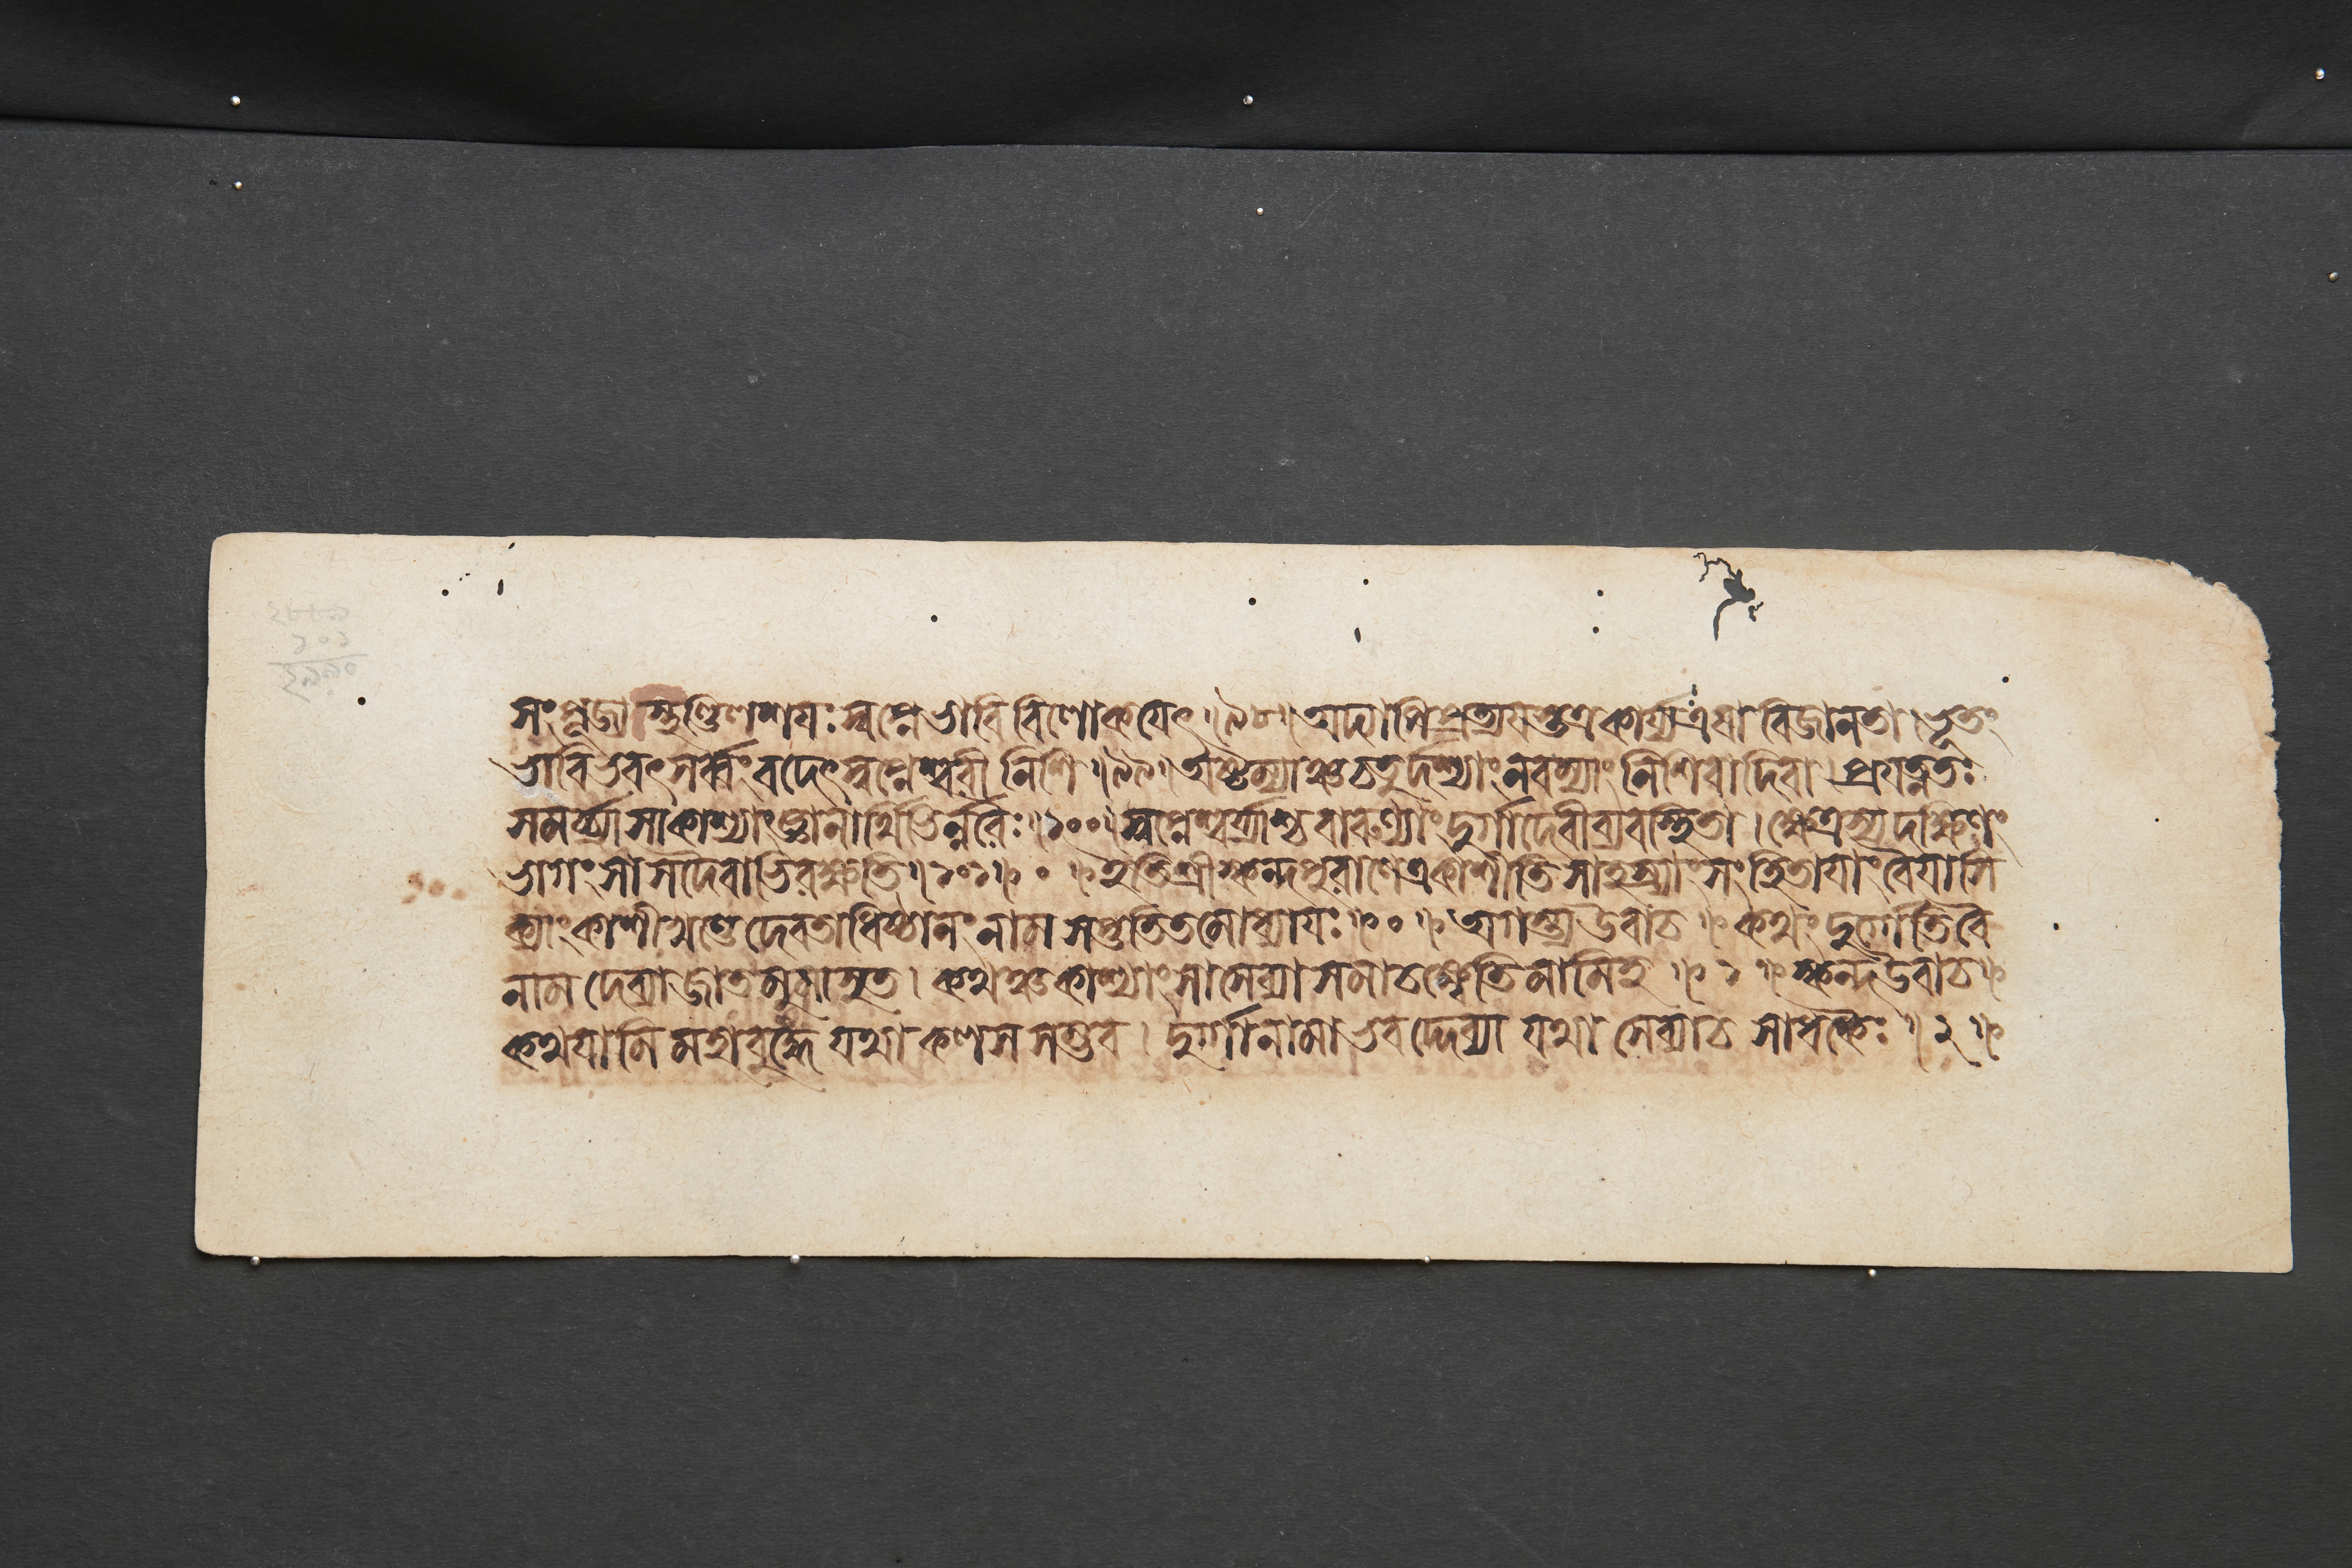 ২৮৮৯
১০১
২৯৯০
সংপূজ্য স্থণ্ডিলশযঃ স্বপ্নে ভাবি বিলোকযেৎ ॥ ৯৮ ॥ অদ্যাপি প্রত্যযস্তত্র কার্য্য এষা বিজানতা । ভূতং
ভাবি ভবৎ সর্ব্বং বদেৎ স্বপ্নেশ্বরী নিশি ॥ ৯৯ ॥ অষ্টম্যাঞ্চ চতুর্দশ্যাং নবম্যাং নিশি বা দিবা । প্রযত্নতঃ
সমর্চ্চ্যা সা কাশ্যাং জ্ঞানার্থিভির্নরৈঃ ॥ ১০০ ॥ স্বপ্নেশ্বর্যাশ্চ বারুণ্যাং দুর্গাদেবী ব্যবস্থিতা । ক্ষেত্রস্য দক্ষিণং
ভাগং সা সদৈবাভিরক্ষতি ॥ ১০১ ॥ ০ ॥ ইতি শ্রীস্কন্দপুরাণে একাশীতিসাহস্র্যাং সংহিতাযাং বৈযাসি
ক্যাং কাশীখণ্ডে দেবতাধিষ্ঠানং নাম সপ্ততিতমোধ্যাযঃ ॥ ০ ॥ অগস্ত্য উবাচ ॥ কথং দুর্গাতি বৈ
নাম দেব্যা জাতমুমাসুত । কথঞ্চ কাশ্যাং সা সেব্যা সমাচক্ষ্বেতি মামিহ ॥ ১ ॥ স্কন্দ উবাচ ॥
কথযামি মহাবুদ্ধে যথা কলসসম্ভব । দুর্গা নামাভবদ্দেব্যা যথা সেব্যা চ সাধকৈঃ ॥ ২ ॥